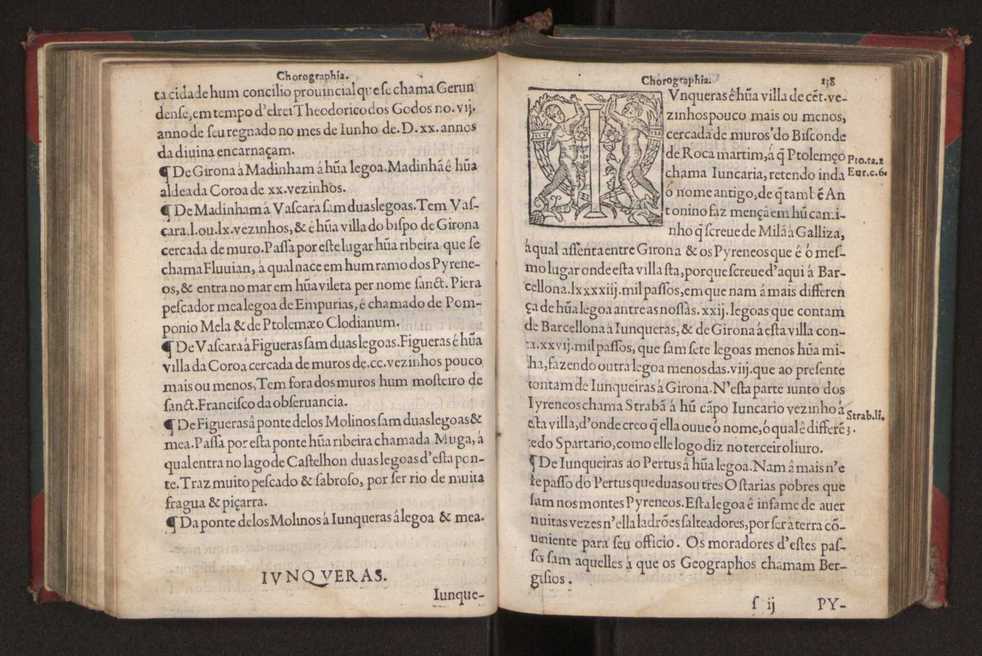 Chorographia.
ta cidade hum concilio prouincial que se chama Gerun
dense, em tempo d'elrei Theodorico dos Godos no. vij.
anno de seu regnado no mes de Iunho de. D. xx. annos
da diuina encarnaçam.
¶ De Girona à Madinham á hũa legoa. Madinhã é hũa
aldea da Coroa de xx. vezinhos.
¶ De Madinham à Vascara sam duas legoas. Tem Vas-
cara. l. ou. lx. vezinhos, & é hũa villa do bispo de Girona
cercada de muro. Passa por este lugar hũa ribeira que se
chama Fluuian, à qual nace em hum ramo dos Pyrene-
os, & entra no mar em hũa vileta per nome sanct. Piera
pescador mea legoa de Empurias, é chamado de Pom-
ponio Mela & de Ptolemæo Clodianum.
¶ De Vascara à Figueras sam duas legoas. Figueras é hũa
villa da Coroa cercada de muros de. cc. vezinhos pouco
mais ou menos, Tem fora dos muros hum mosteiro de
sanct. Francisco da obseruancia.
¶ De Figueras â ponte delos Molinos sam duas legoas &
mea. Passa por esta ponte hũa ribeira chamada Muga, á
qual entra no lago de Castelhon duas legoas d'esta pon-
te. Traz muito pescado & sabroso, por ser rio de muita
fragua & piçarra.
¶ Da ponte delos Molinos à Iunqueras á legoa & mea.
IVNQVERAS.
Iunque-
Chorographia. 138
IVnqueras é hũa villa de cẽt. ve-
zinhos pouco mais ou menos,
cercada de muros do Bisconde
de Roca martim, á q̃ Ptolemęo
chama Iuncaria, retendo inda
ó nome antigo, de q̃ tambẽ An
tonino faz mençã em hũ cami-
nho q̃ screue de Milã à Galliza,
Pto. ta. 2
Eur. c. 6.
à qual assenta entre Girona & os Pyreneos que é ó mes-
mo lugar onde esta villa sta, porque screue d'aqui â Bar-
cellona. lxxxiiij. mil passos, em que nam á mais differen
ça de hũa legoa antre as nossas. xxij. legoas que contam
de Barcellona à Iunqueras, & de Girona á esta villa con-
ta. xxvij. mil passos, que sam sete legoas menos hũa mi-
lha, fazendo outra legoa menos das. viij. que ao presente
contam de Iunqueiras à Girona. N'esta parte iunto dos
Pyreneos chama Strabã á hũ cãpo Iuncario vezinho á
esta villa, d'onde creo q̃ ella ouue ó nome, ó qual é differẽ
te do Spartario, como elle logo diz no terceiro liuro.
Strab. li.
3.
¶ De Iunqueiras ao Pertus á hũa legoa. Nam â mais n'e
ste passo do Pertus que duas ou tres Ostarias pobres que
sam nos montes Pyreneos. Esta legoa é infame de auer
muitas vezes n'ella ladrões salteadores, por ser â terra cõ-
ueniente para seu officio. Os moradores d'estes pas-
sos sam aquelles á que os Geographos chamam Ber-
gisios.
s ij PY-